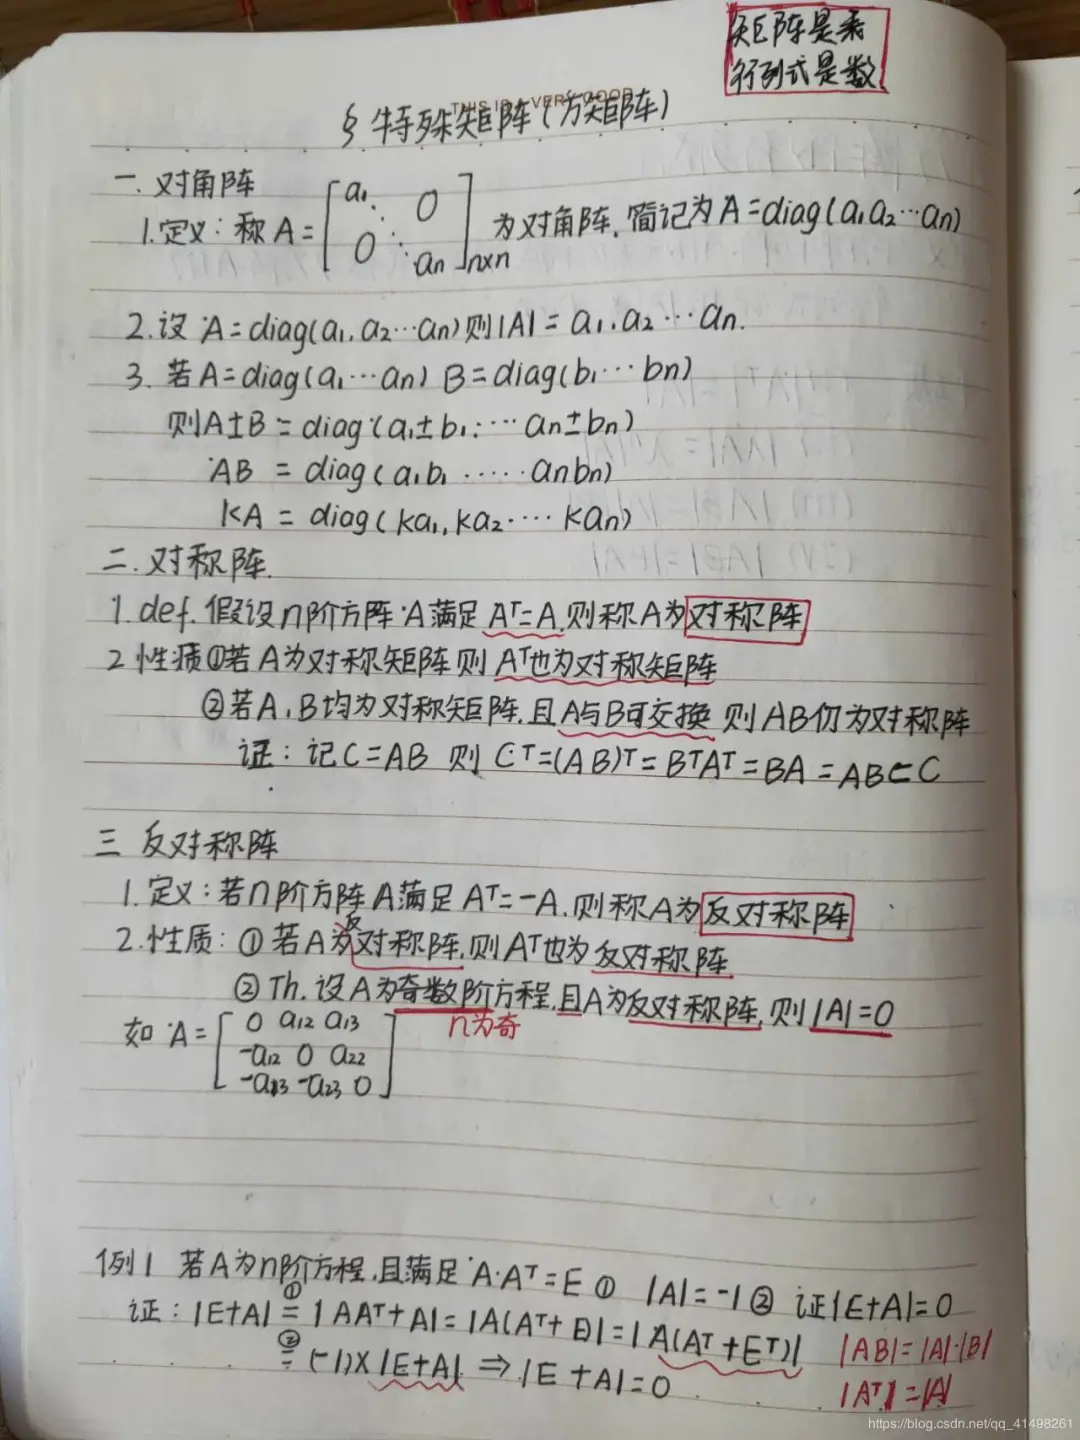 矩阵是表
行列式是数
THIS IS A VERY GOOD
§ 特殊矩阵(方矩阵)
一. 对角阵
1.定义: 称 A = [a₁ ⋱ 0 0 ⋱ aₙ]n×n 为对角阵. 简记为 A=diag(a₁ a₂⋯aₙ)
2. 设 A=diag(a₁, a₂⋯aₙ) 则|A| = a₁.a₂⋯aₙ.
3. 若A=diag(a₁⋯aₙ) B=diag(b₁⋯bₙ)
则A±B = diag(a₁±b₁, ⋯ aₙ±bₙ)
AB = diag(a₁b₁ ⋯⋯ aₙbₙ)
KA = diag(ka₁, ka₂⋯⋯kaₙ)
二. 对称阵.
1. def. 假设n阶方阵A满足 Aᵀ=A, 则称A为对称阵
2 性质①若A为对称矩阵则 Aᵀ也为对称矩阵
②若A,B均为对称矩阵,且A与B可交换 则AB仍为对称阵
证: 记C=AB 则 Cᵀ=(AB)ᵀ=BᵀAᵀ=BA=AB=C
三 反对称阵
1. 定义: 若n阶方阵A满足Aᵀ=-A.则称A为反对称阵
2.性质: ①若A为反对称阵,则Aᵀ也为反对称阵
②Th. 设A为奇数阶方程,且A为反对称阵,则|A|=0
n为奇
如 A = [0 a₁₂ a₁₃
-a₁₂ 0 a₂₂
-a₁₃ -a₂₃ 0]
例1 若A为n阶方程,且满足 A·Aᵀ=E ① |A|=-1 ② 证|E+A|=0
证: |E+A| ①= |AAᵀ+A|=|A(Aᵀ+E)|=|A(Aᵀ+Eᵀ)|
②= (-1)×|E+A| ⇒ |E+A|=0
|AB|=|A|·|B|
|Aᵀ|=|A|
https://blog.csdn.net/qq_41498261